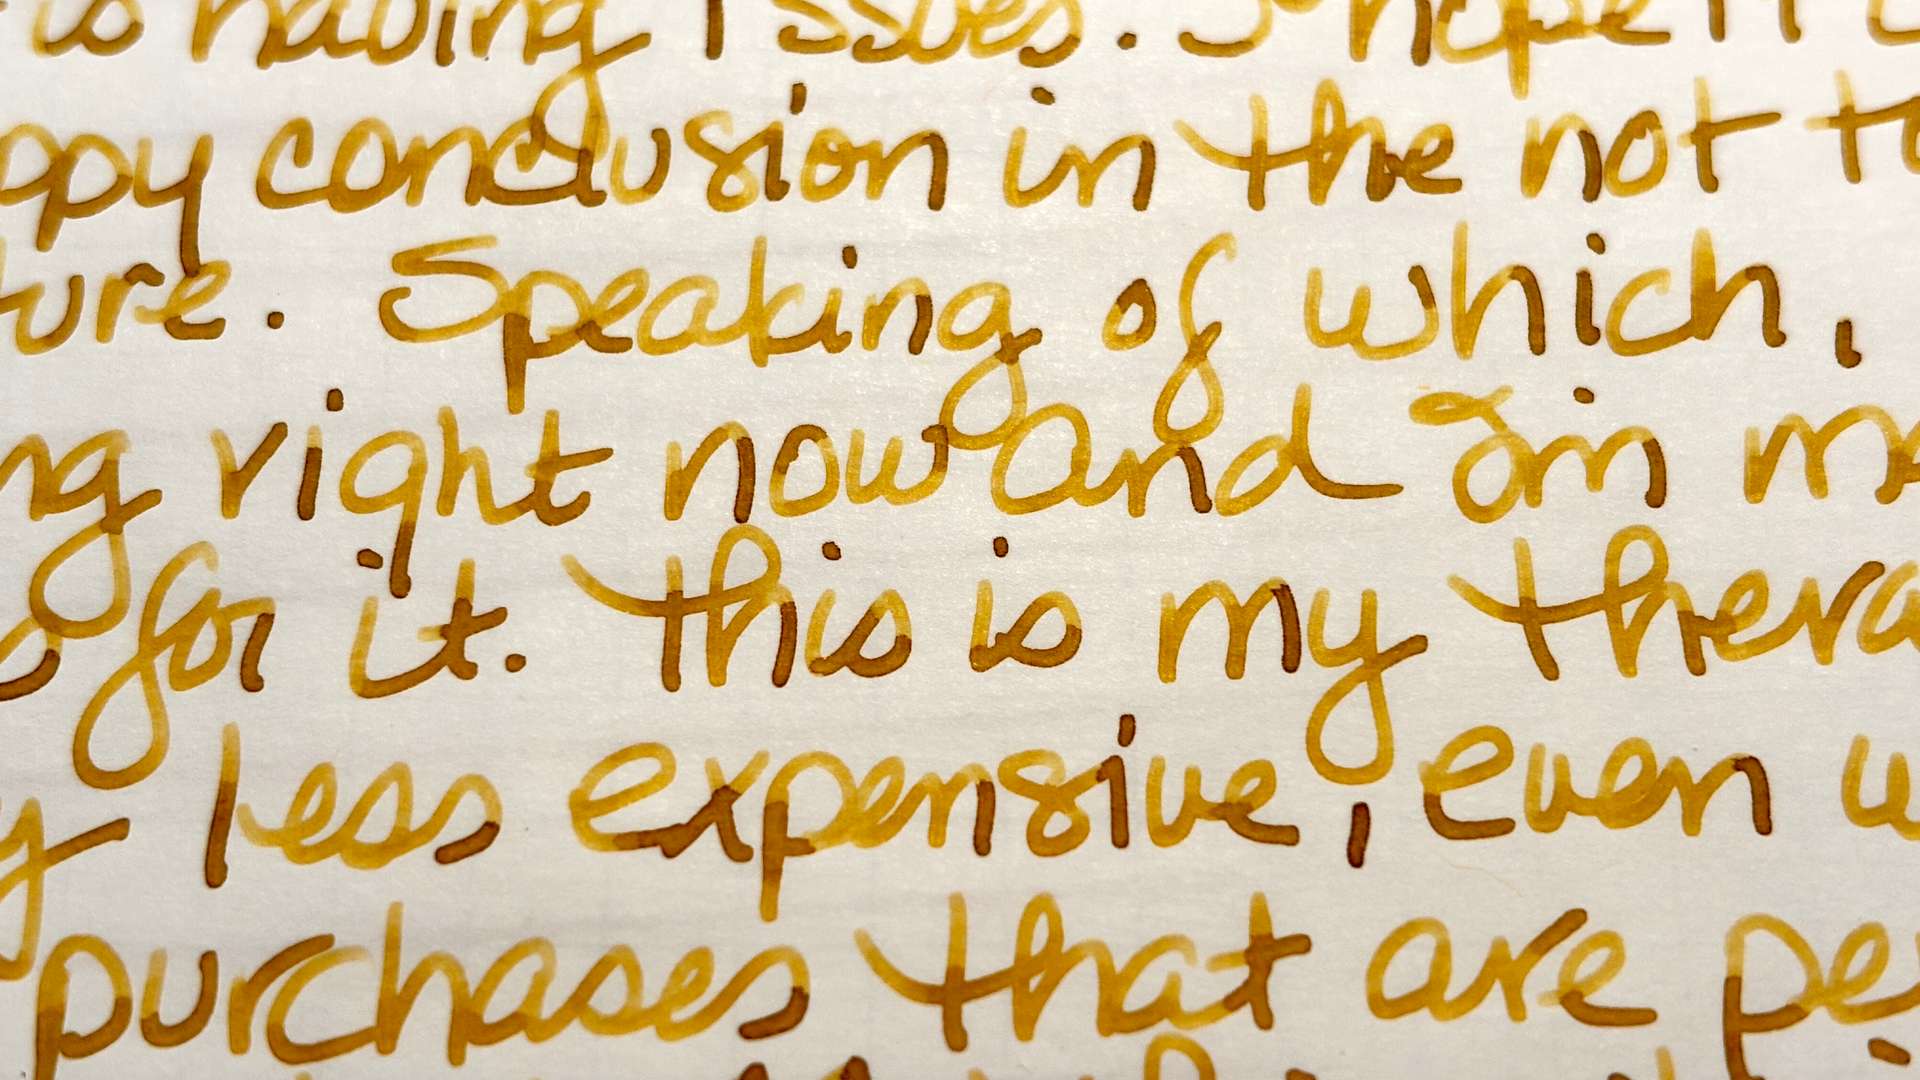 is having issues. I hope it
ppy conclusion in the not t
ture. Speaking of which,
ng right now and I'm m
for it. this is my thera
y less expensive, even w
purchases that are pe